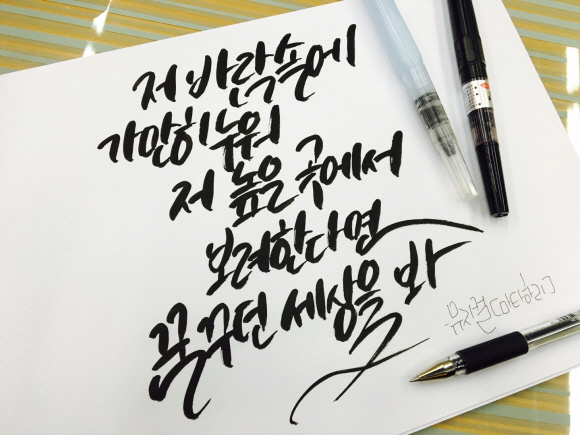 저 바람속에
가만히 누워
저 높은 곳에서
보려한다면
꿈꾸던 세상을 봐
뮤지컬[마타하리]